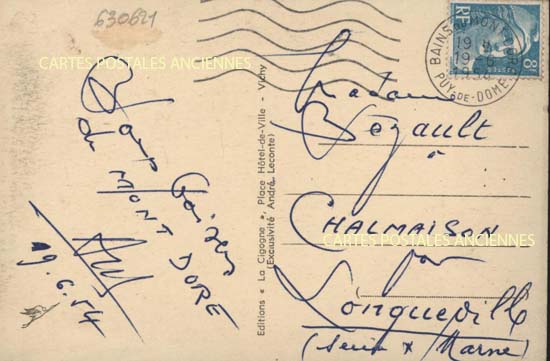 630621
CARTES POSTALES ANCIENNES
Bons Baisers
du MONT DORE
19.6.54
Editions « La Cigogne », Place Hôtel-de-Ville - Vichy
(Exclusivité André Leconte)
BAINS
PUY-DE-DOME
RF
8F
Madame
Bézault
à
CHALMAISON
CARTES POSTALES ANCIENNES
par
Longueville
(Seine & Marne)